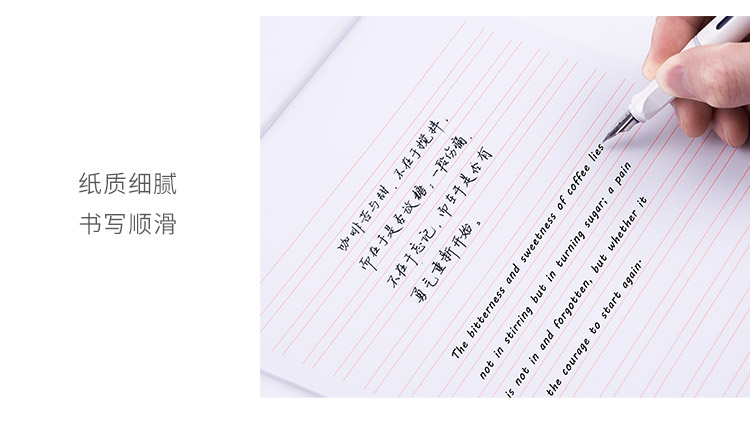 纸质细腻
书写顺滑
咖啡苦与甜，不在于搅拌，
而在于是否放糖；一段伤痛，
不在于忘记，而在于是否有
勇气重新开始。
The bitterness and sweetness of coffee lies
not in stirring but in turning sugar; a pain
is not in and forgotten, but whether it
the courage to start again.